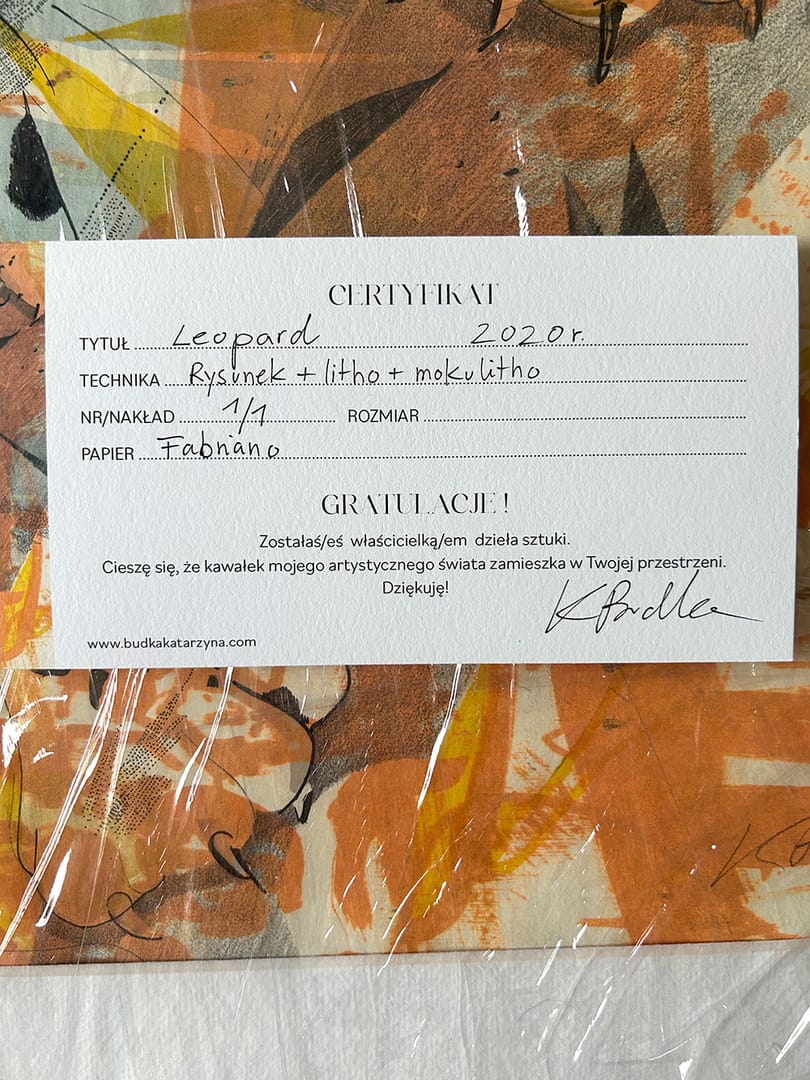 CERTYFIKAT
TYTUŁ Leopard 2020 r.
TECHNIKA Rysunek + litho + mokulitho
NR/NAKŁAD 1/1 ROZMIAR
PAPIER Fabriano
GRATULACJE!
Zostałaś/eś właścicielką/em dzieła sztuki.
Cieszę się, że kawałek mojego artystycznego świata zamieszka w Twojej przestrzeni.
Dziękuję!
K Budka
www.budkakatarzyna.com